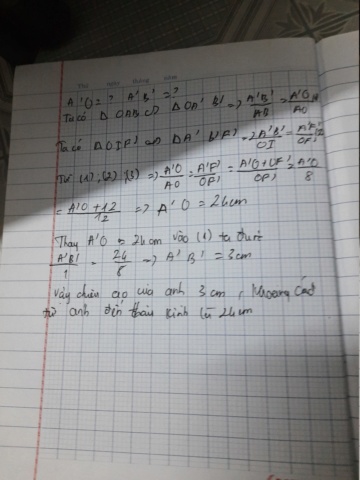 A'O = ? A'B' = ?
Ta có Δ OAB ∽ Δ OA'B' => A'B'/AB = A'O/AO
Ta có Δ OIF' ∽ Δ A'B'F' => A'B'/OI = A'F'/OF'
Từ (1), (2), (3) => A'O/AO = A'F'/OF' = A'O+OF'/OF' = A'O/8
= A'O + 12/12 => A'O = 24cm
Thay A'O = 24cm vào (1) ta được
A'B'/1 = 24/8 => A'B' = 3cm
vậy chiều cao của ảnh 3cm, khoảng cách
từ ảnh đến thấu kính là 24cm